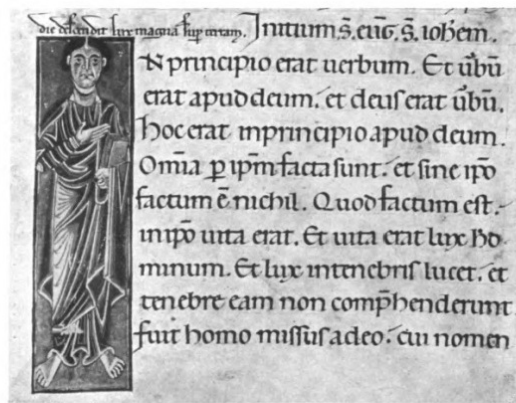 die descendit lux magna sup terram. Initium s̄. euḡ. s̄. ioh̄em.
N principio erat uerbum. Et ūbū
erat apud deum. et deus erat ūbū.
hoc erat inprincipio apud deum.
Om̄ia p̱ ip̄m facta sunt. et sine ip̄o
factum ē nichil. Quod factum est.
in ip̄o uita erat. Et uita erat lux ho
minum. Et lux intenebris lucet. et
tenebre eam non comp̄henderunt
fuit homo missus adeo. cui nomen